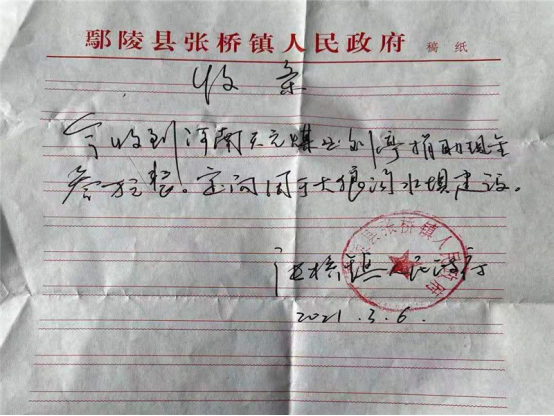 鄢陵县张桥镇人民政府 稿纸
收条
今收到河南天元煤业刘 捐助现金
叁万整。定向用于大狼沟水坝建设。
张桥镇人民政府
鄢陵县张桥镇人民政府
2021.3.6.